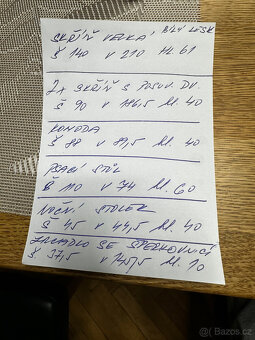 SKŘÍŇ VELKÁ BÍLÝ LESK
Š 140 v 210 Hl. 61
2x SKŘÍŇ S POSUV. DV.
Š 90 v 176,5 hl. 40
KOMODA
Š 88 v 87,5 hl. 40
PSACÍ STŮL
Š 110 v 74 hl. 60
NOČNÍ STOLEK
Š 45 v 44,5 hl. 40
ZRCADLO SE ŠPERKOVNICÍ
Š 37,5 v 145,5 hl. 10
sbazos.cz